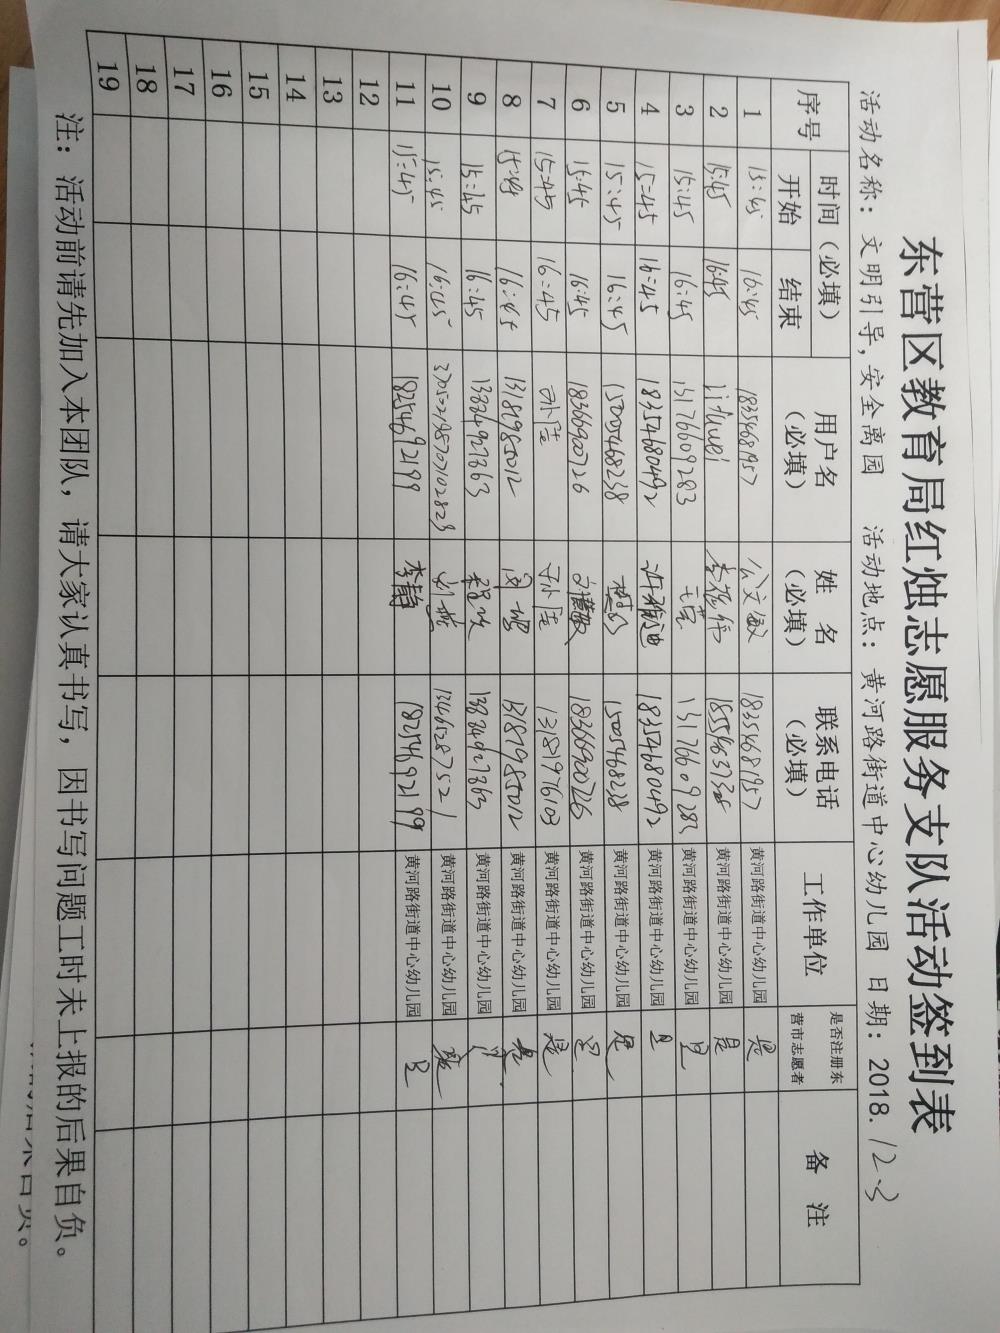 东营区教育局红烛志愿服务支队活动签到表
活动名称：文明引导，安全离园 活动地点：黄河路街道中心幼儿园 日期：2018.12.3
序号 时间（必填） 用户名（必填） 姓名（必填） 联系电话（必填） 工作单位 是否注册东营市志愿者 备注
开始 结束
1 15:45 16:45 18354681957 公文敏 18354681957 黄河路街道中心幼儿园 是
2 15:45 16:45 李雅倩 黄河路街道中心幼儿园 是
3 15:45 16:45 13176609283 王芸 13176609283 黄河路街道中心幼儿园 是
4 15:45 16:45 18354680492 18354680492 黄河路街道中心幼儿园 是
5 15:45 16:45 黄河路街道中心幼儿园 是
6 15:45 16:45 18366900726 18366900726 黄河路街道中心幼儿园 是
7 15:45 16:45 孙洁 孙洁 13181976103 黄河路街道中心幼儿园 是
8 15:45 16:45 13181985012 13181985012 黄河路街道中心幼儿园 是
9 15:45 16:45 13834927363 13834927363 黄河路街道中心幼儿园 是
10 15:45 16:45 13461287521 黄河路街道中心幼儿园
11 15:45 16:45 18254692199 李静 18254692199 黄河路街道中心幼儿园 是
12
13
14
15
16
17
18
19
注：活动前请先加入本团队，请大家认真书写，因书写问题工时未上报的后果自负。